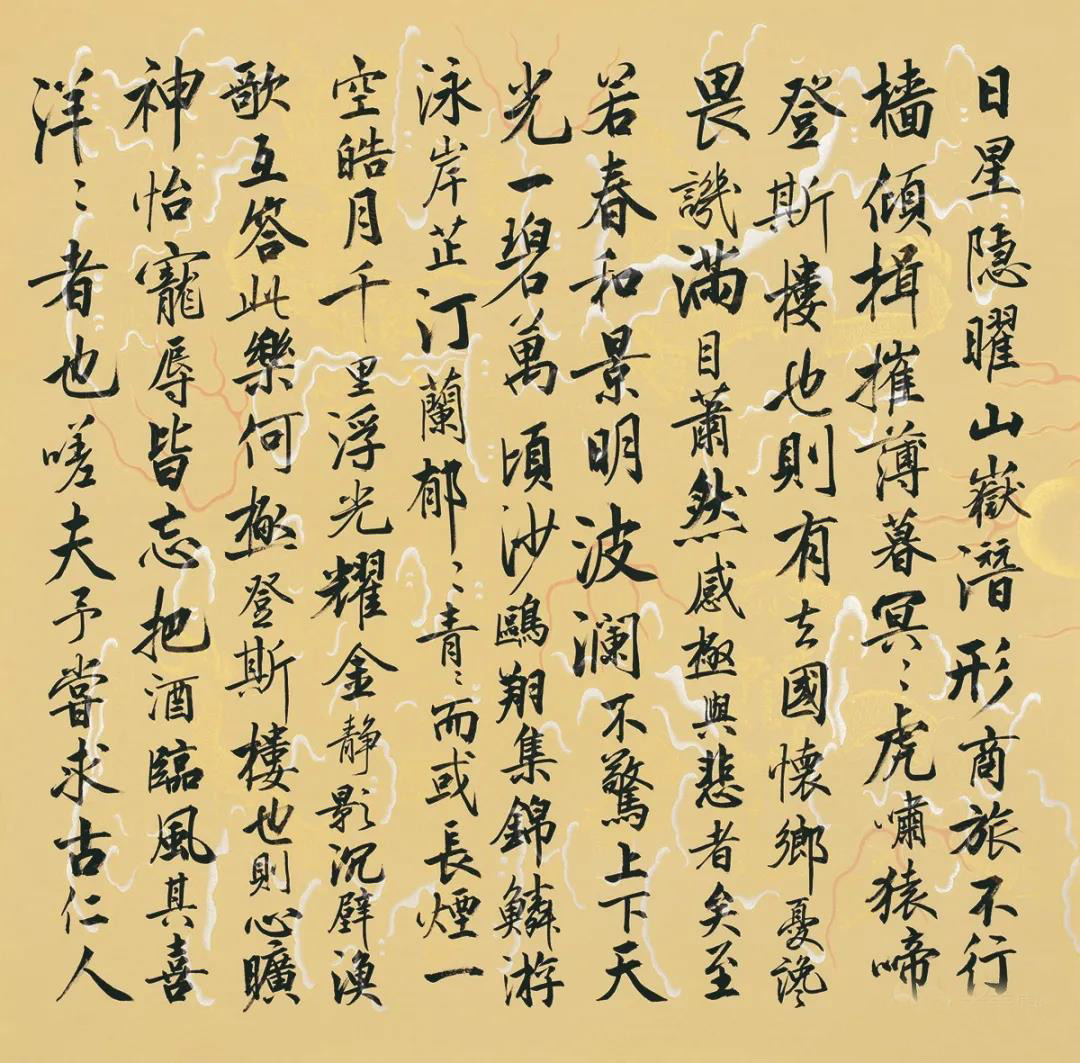 日星隱曜山嶽潛形商旅不行
檣傾楫摧薄暮冥〻虎嘯猿啼
登斯樓也則有去國懷鄉憂讒
畏譏滿目蕭然感極與悲者矣至
若春和景明波瀾不驚上下天
光一碧萬頃沙鷗翔集錦鱗游
泳岸芷汀蘭郁〻青〻而或長煙一
空皓月千里浮光耀金静影沉璧漁
歌互答此樂何極登斯樓也則心曠
神怡寵辱皆忘把酒臨風其喜
洋〻者也嗟夫予嘗求古仁人